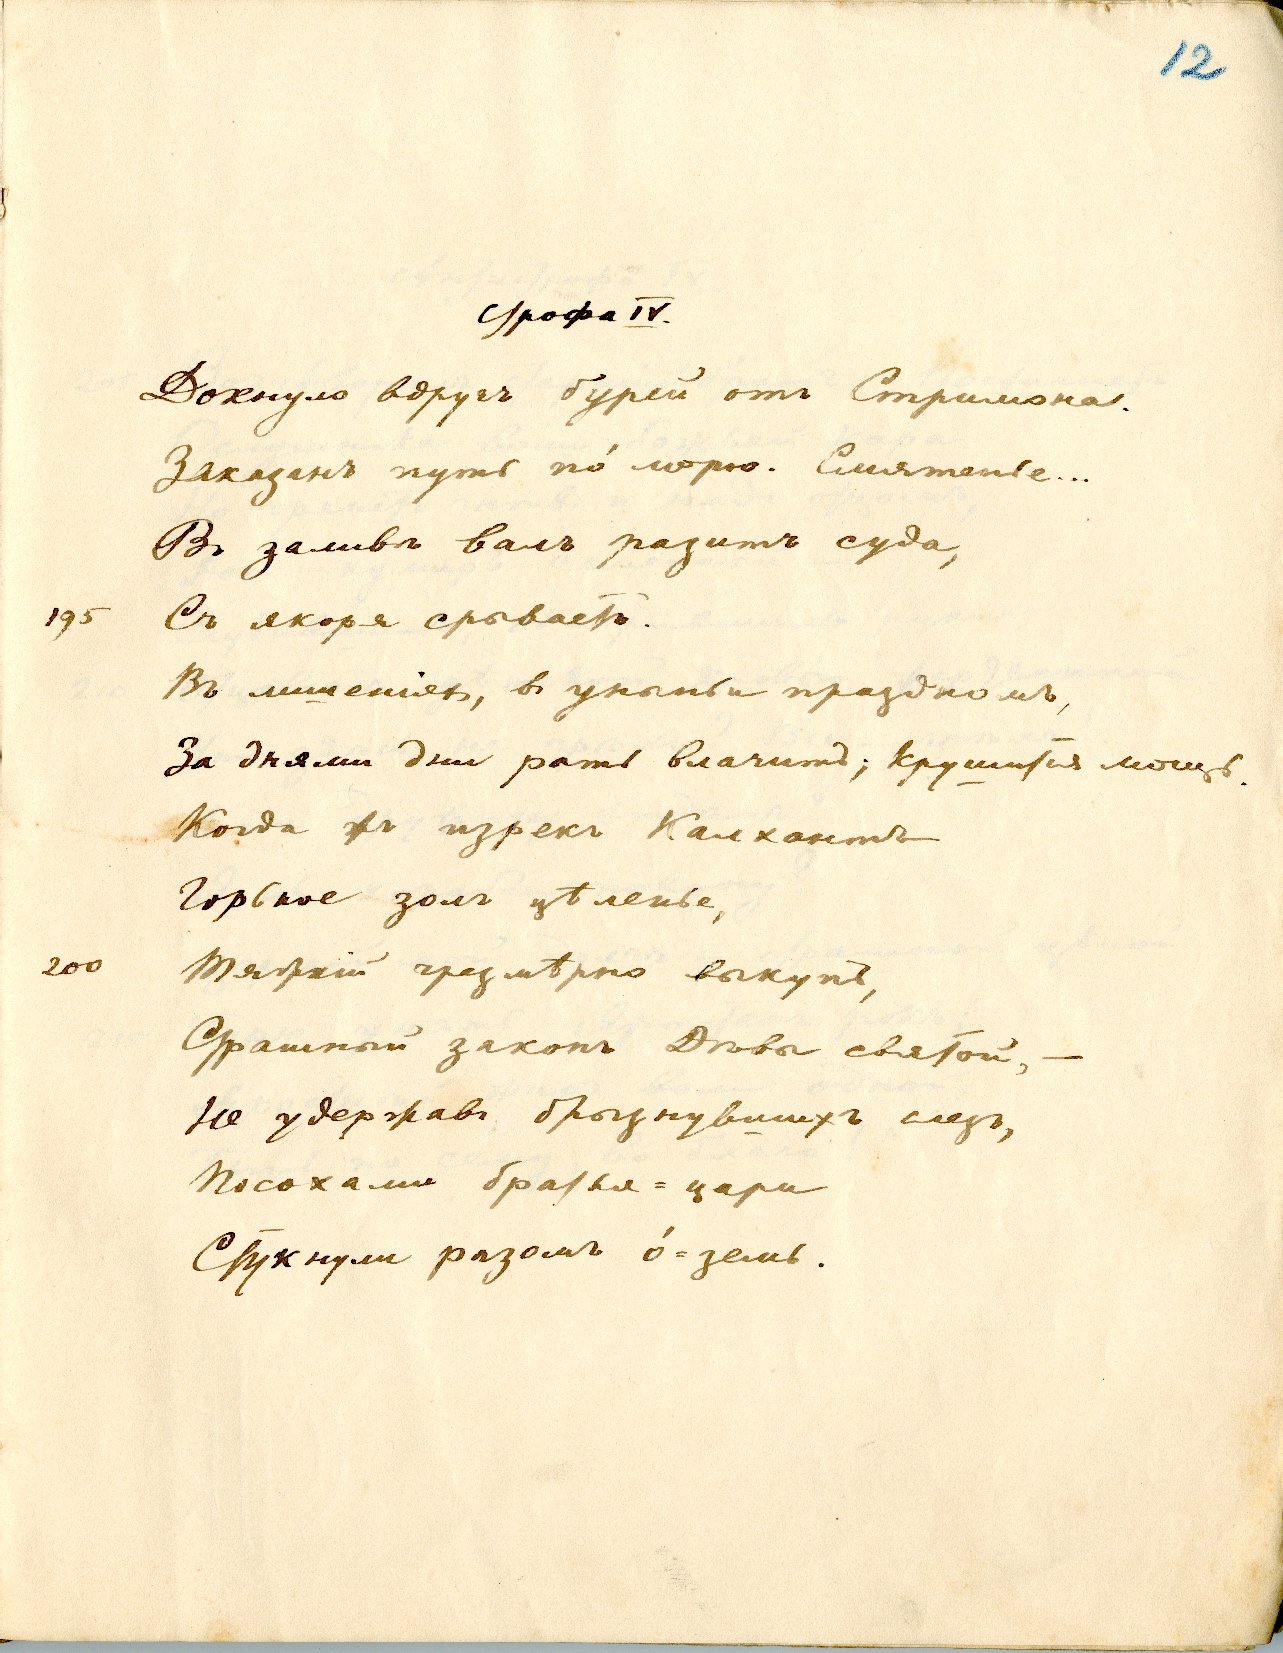 12
Строфа IV.
Дохнуло вдругъ бурей отъ Стримона.
Заказанъ путь по́ морю. Смятенье...
Въ заливѣ валъ разитъ суда,
195 Съ якоря срываетъ.
Въ лишеніяхъ, въ уныньи праздномъ,
За днями дни рать влачитъ; крушится мощь.
Когда жъ изрекъ Калхантъ
Горькое золъ цѣленье,
200 Тяжкій чрезмѣрно выкупъ,
Страшный законъ Дѣвы святой, —
Не удержавъ брызнувшихъ слезъ,
Посохами братья=цари
Стукнули разомъ о́=земь.